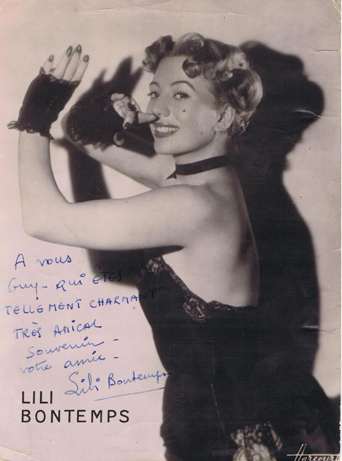 A vous
Guy - qui êtes
TELLEMENT CHARMANT
TRÈS AMICAL
Souvenir -
votre amie -
Lili Bontemps
LILI
BONTEMPS
Harcourt